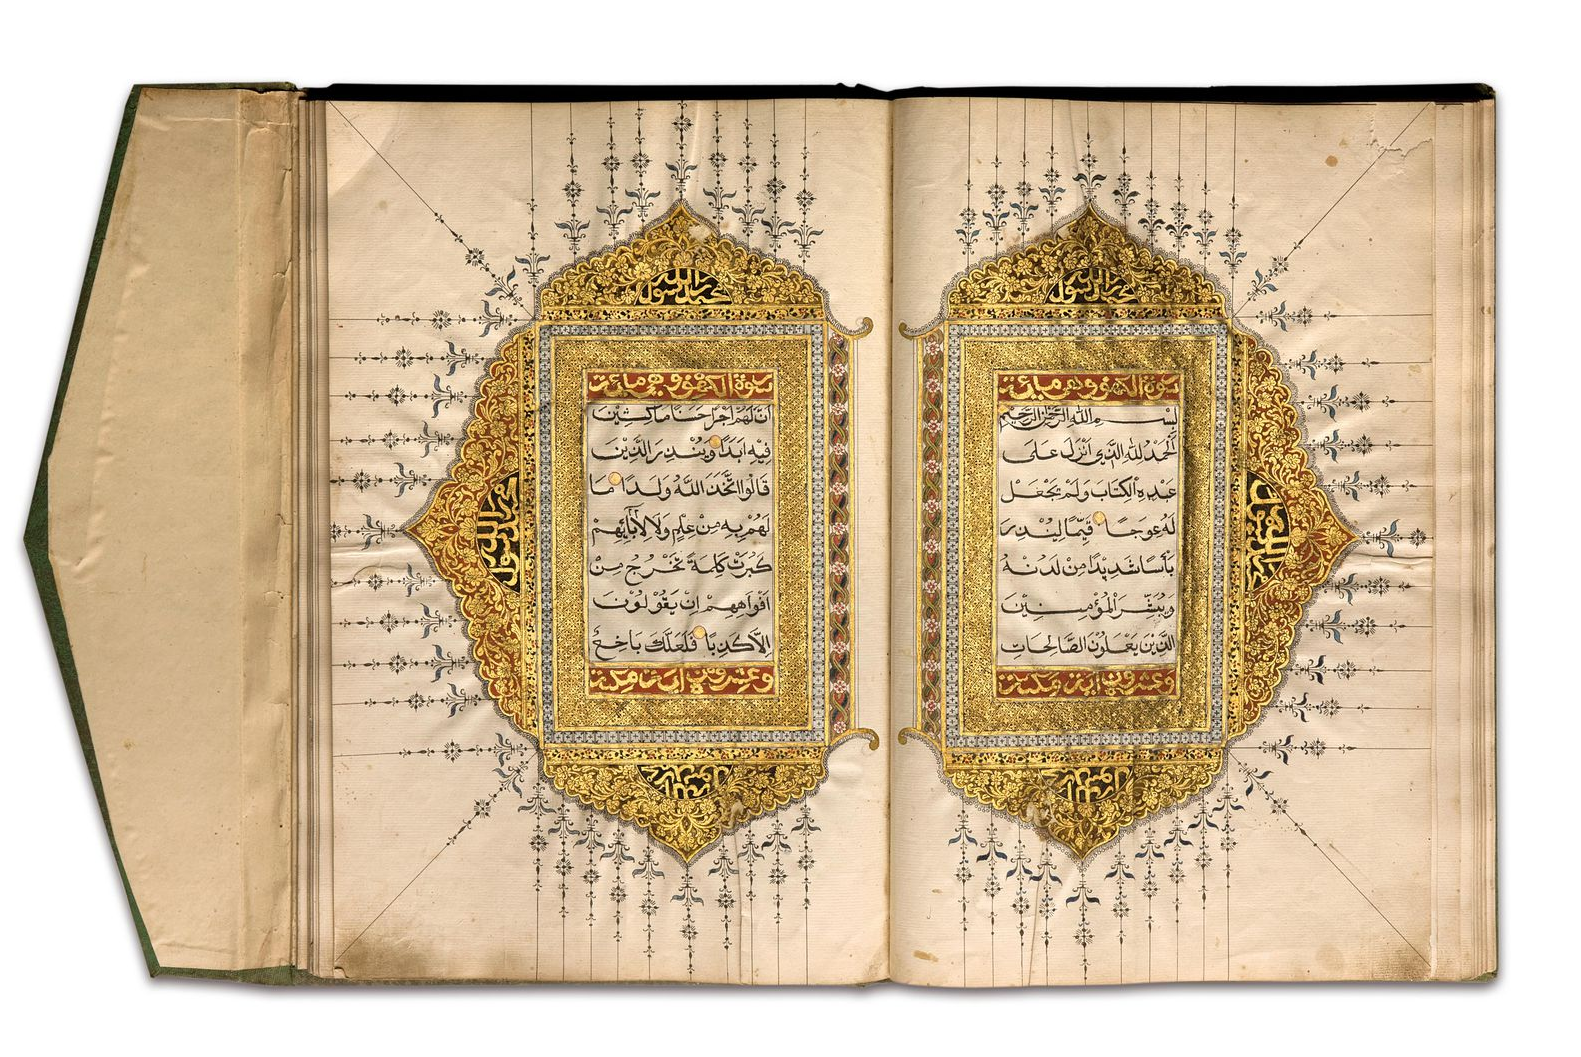 محمد رسول الله
سورة الكهف وهي مائة
بسم الله الرحمن الرحيم
الحمد لله الذي انزل على
عبده الكتاب ولم يجعل
له عوجا قيما لينذر
بأسا شديدا من لدنه
ويبشر المؤمنين
الذين يعملون الصالحات
وعشرون اية مكية
محمد رسول الله
سورة الكهف وهي مائة
ان لهم اجرا حسنا ماكثين
فيه ابدا وينذر الذين
قالوا اتخذ الله ولدا ما
لهم به من علم ولا لآبائهم
كبرت كلمة تخرج من
افواههم ان يقولون
الا كذبا فلعلك باخع
وعشرون اية مكية
محمد رسول الله